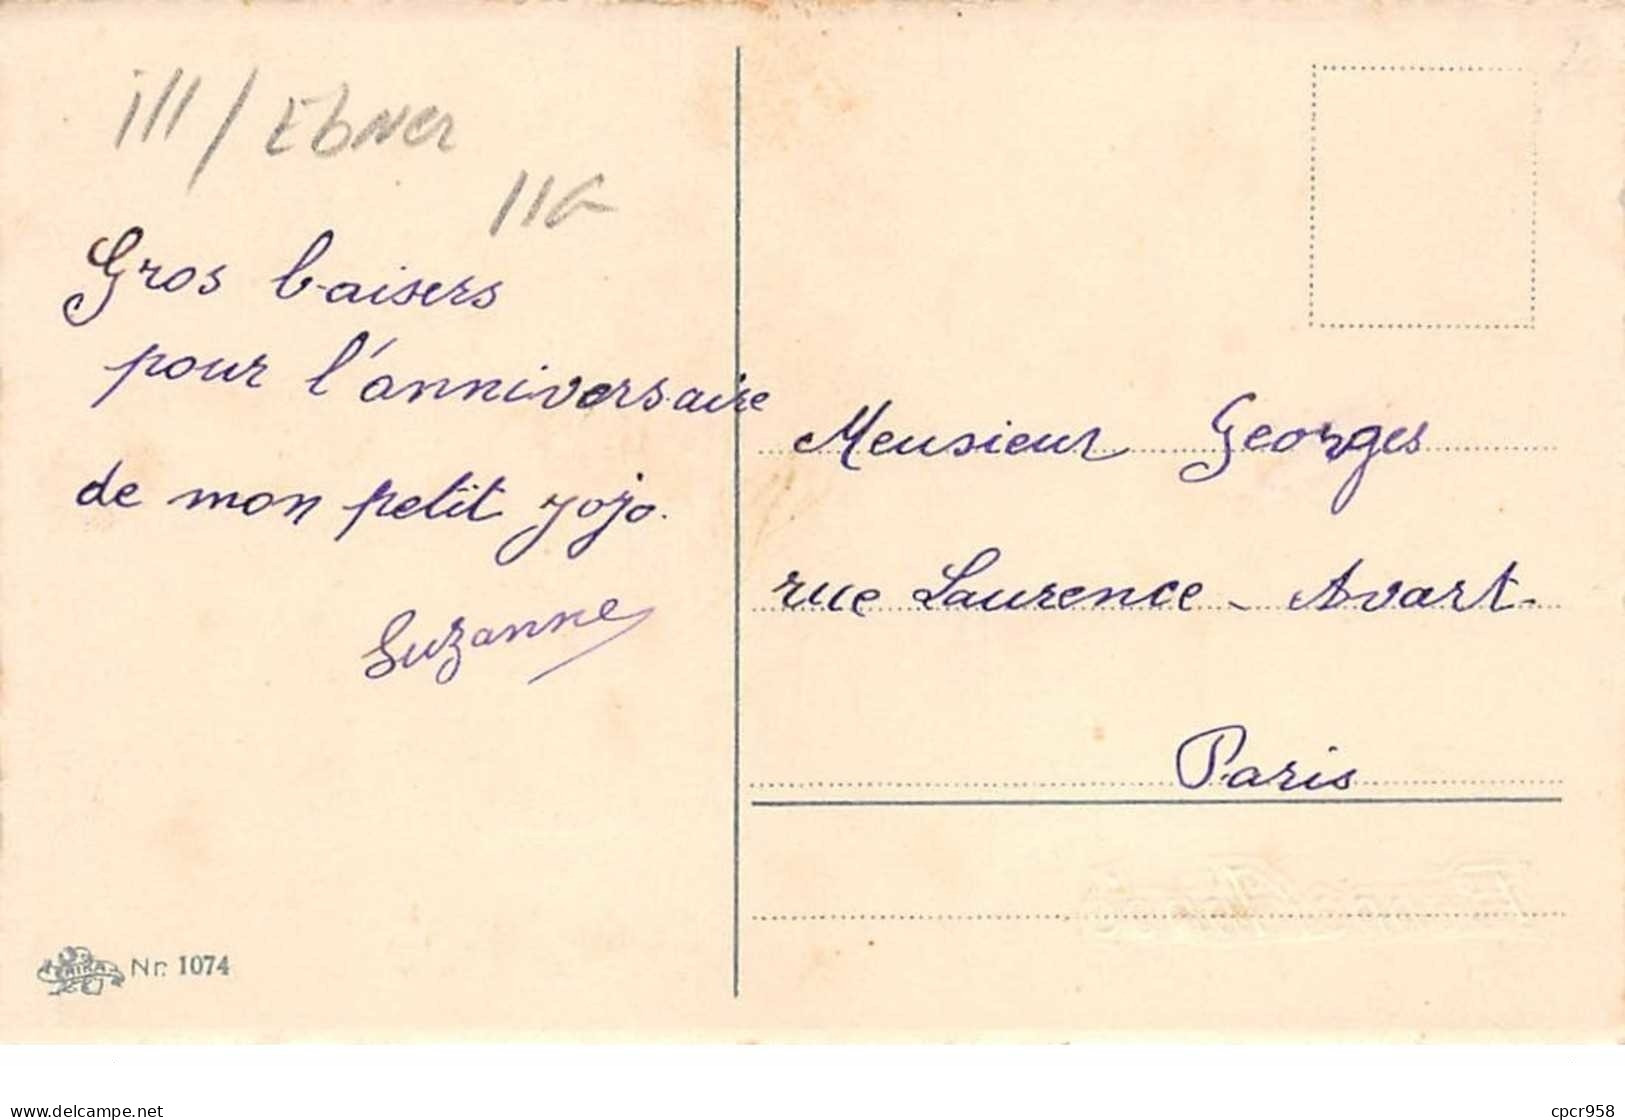 ill/Ebner
11G
Gros baisers
pour l'anniversaire
de mon petit Jojo.
Suzanne
Meusieur Georges
rue Laurence - Avart.
Paris
ERIKA
Nr. 1074
www.delcampe.net
cpcr958